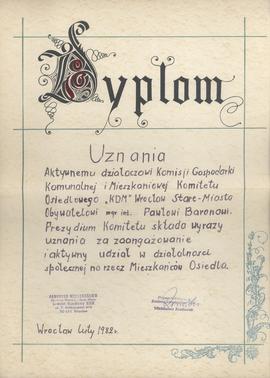 Dyplom
Uznania
Aktywnemu działaczowi Komisji Gospodarki
Komunalnej i Mieszkaniowej Komitetu
Osiedlowego „KDM" Wrocław Stare-Miasto
Obywatelowi mgr inż. Pawłowi Baronowi.
Prezydium Komitetu składa wyrazy
uznania za zaangażowanie
i aktywny udział w działalności
społecznej na rzecz Mieszkańców Osiedla.
Wrocław luty 1982 r.